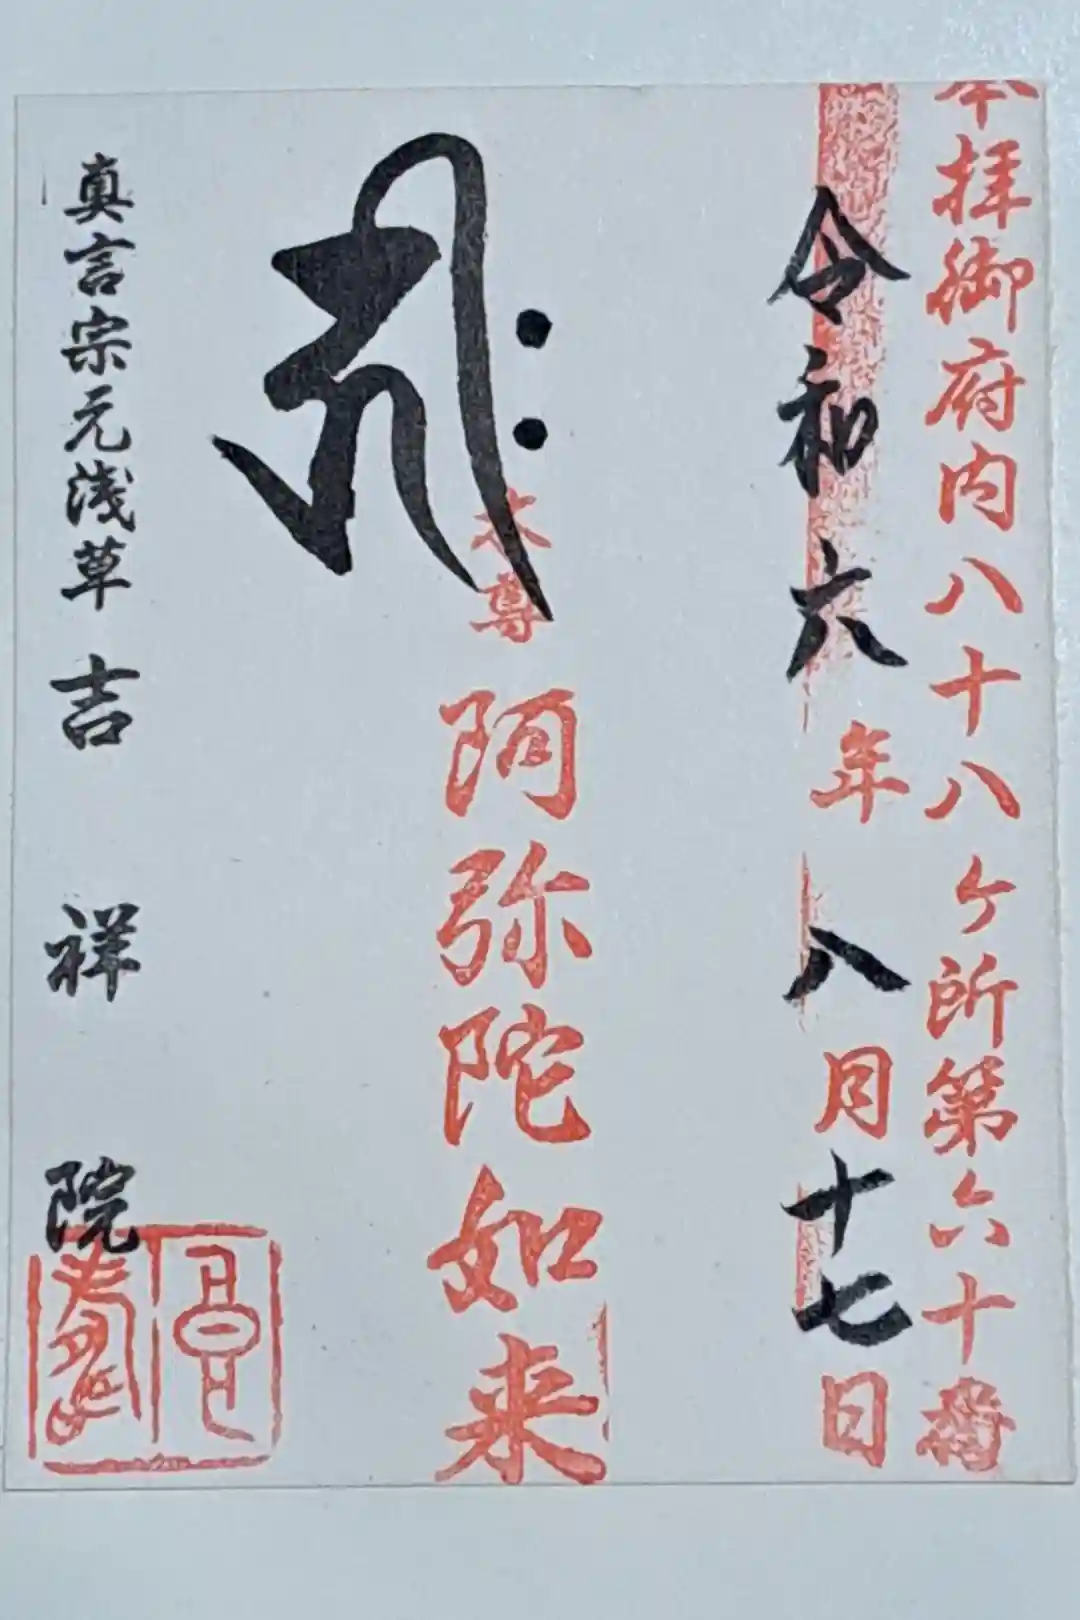 奉拝御府内八十八ヶ所第六十番
令和六年八月十七日
本尊
阿弥陀如来
真言宗元浅草 吉祥院